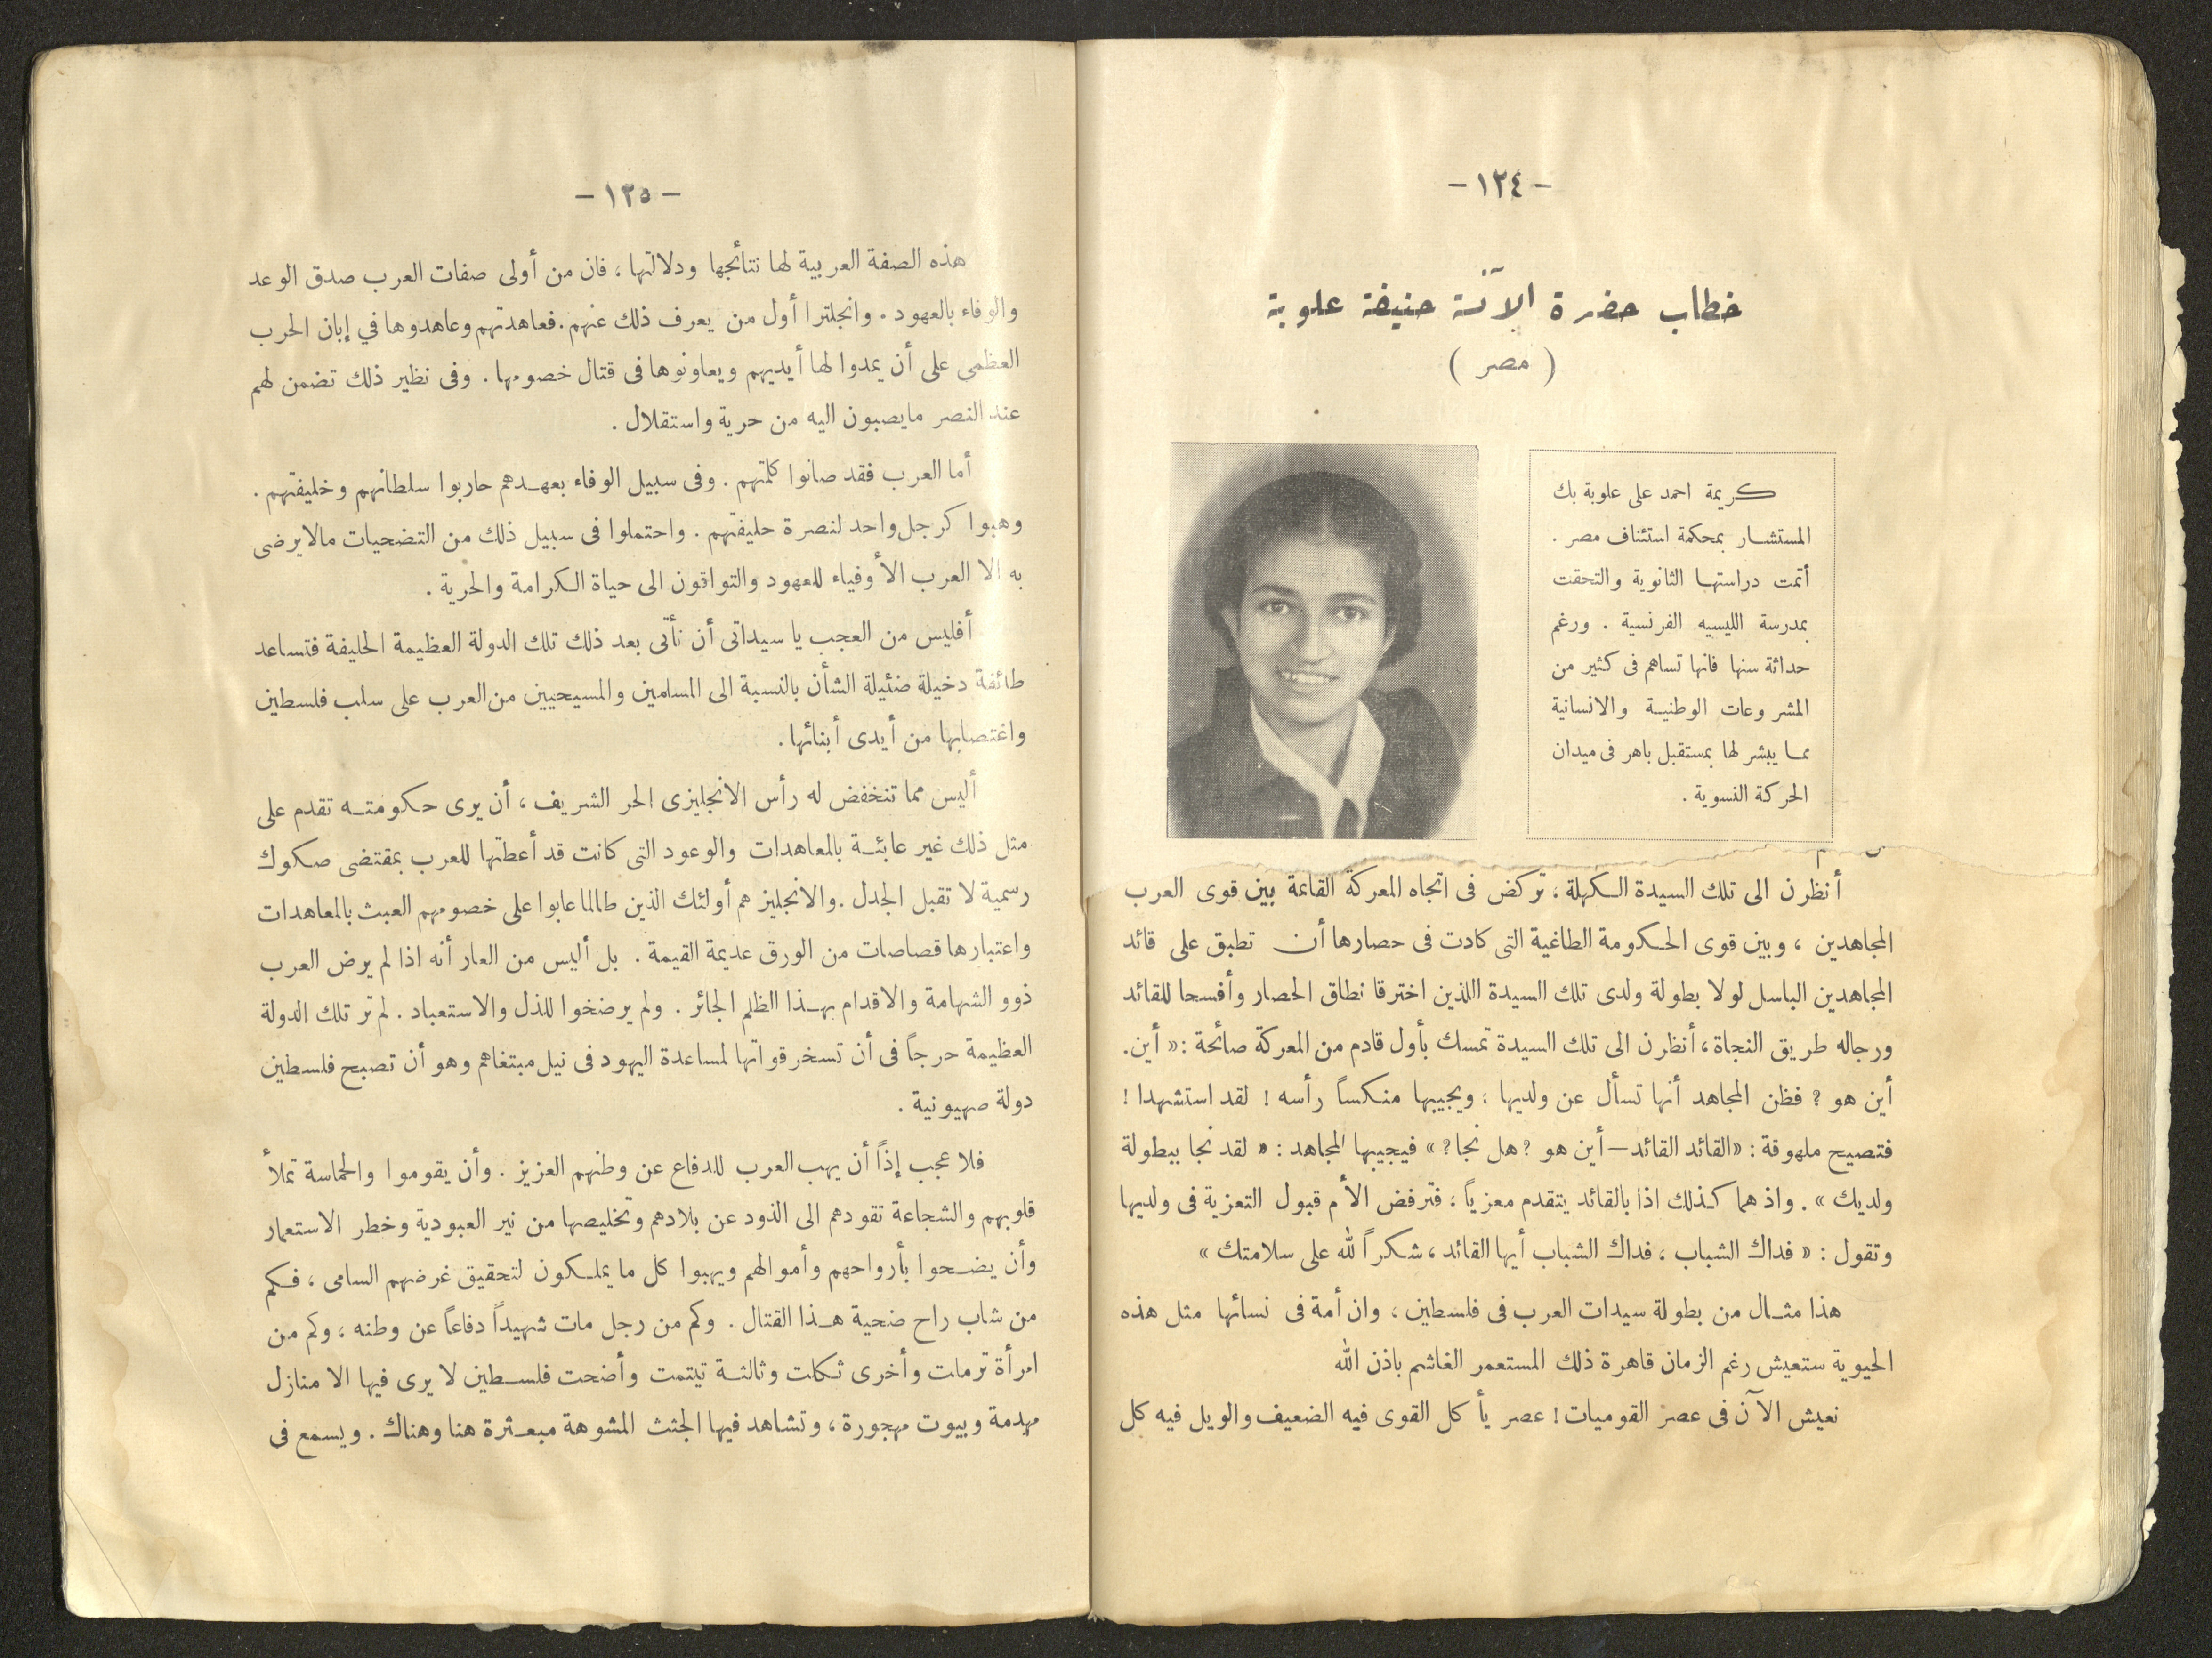 - ١٢٤ -
خطاب حضرة الآنسة حنيفة علوبة
( مصر )
كريمة احمد على علوبة بك
المستشار بمحكمة استئناف مصر .
أتمت دراستها الثانوية والتحقت
بمدرسة الليسيه الفرنسية . ورغم
حداثة سنها فانها تساهم فى كثير من
المشروعات الوطنية والانسانية
مما يبشر لها بمستقبل باهر فى ميدان
الحركة النسوية .
أنظرن الى تلك السيدة الكهلة ، تركض فى اتجاه المعركة القائمة بين قوى العرب
المجاهدين ، وبين قوى الحكومة الطاغية التى كادت فى حصارها أن تطبق على قائد
المجاهدين الباسل لولا بطولة ولدى تلك السيدة اللذين اخترقا نطاق الحصار وأفسحا للقائد
ورجاله طريق النجاة ، أنظرن الى تلك السيدة تمسك بأول قادم من المعركة صائحة : « أين .
أين هو ؟ فظن المجاهد أنها تسأل عن ولديها ، ويجيبها منكساً رأسه ! لقد استشهدا !
فتصيح ملهوفة : « القائد القائد — أين هو ؟ هل نجا ؟ » فيجيبها المجاهد : « لقد نجا ببطولة
ولديك » . واذ هما كذلك اذا بالقائد يتقدم معزياً ، فترفض الأم قبول التعزية فى ولديها
وتقول : « فداك الشباب ، فداك الشباب أيها القائد ، شكراً لله على سلامتك »
هذا مثال من بطولة سيدات العرب فى فلسطين ، وان أمة فى نسائها مثل هذه
الحيوية ستعيش رغم الزمان قاهرة ذلك المستعمر الغاشم باذن الله
نعيش الآن فى عصر القوميات ! عصر يأكل القوى فيه الضعيف والويل فيه كل
- ١٢٥ -
هذه الصفة العربية لها نتائجها ودلالتها ، فان من أولى صفات العرب صدق الوعد
والوفاء بالعهود . وانجلترا أول من يعرف ذلك عنهم . فعاهدتهم وعاهدوها في إبان الحرب
العظمى على أن يمدوا لها أيديهم ويعاونوها فى قتال خصومها . وفى نظير ذلك تضمن لهم
عند النصر مايصبون اليه من حرية واستقلال .
أما العرب فقد صانوا كلمتهم . وفى سبيل الوفاء بعهدهم حاربوا سلطانهم وخليفتهم .
وهبوا كرجل واحد لنصرة حليفتهم . واحتملوا فى سبيل ذلك من التضحيات مالا يرضى
به الا العرب الأوفياء للعهود والتواقون الى حياة الكرامة والحرية .
أفليس من العجب يا سيداتى أن تأتى بعد ذلك تلك الدولة العظيمة الحليفة فتساعد
طائفة دخيلة ضئيلة الشأن بالنسبة الى المسلمين والمسيحيين من العرب على سلب فلسطين
واغتصابها من أيدى أبنائها .
أليس مما تنخفض له رأس الانجليزى الحر الشريف ، أن يرى حكومته تقدم على
مثل ذلك غير عابئة بالمعاهدات والوعود التى كانت قد أعطتها للعرب بمقتضى صكوك
رسمية لا تقبل الجدل . والانجليز هم أولئك الذين طالما عابوا على خصومهم العبث بالمعاهدات
واعتبارها قصاصات من الورق عديمة القيمة . بل أليس من العار أنه اذا لم يرض العرب
ذوو الشهامة والاقدام بهذا الظلم الجائر . ولم يرضخوا للذل والاستعباد . لم تر تلك الدولة
العظيمة حرجاً فى أن تسخر قواتها لمساعدة اليهود فى نيل مبتغاهم وهو أن تصبح فلسطين
دولة صهيونية .
فلا عجب إذاً أن يهب العرب للدفاع عن وطنهم العزيز . وأن يقوموا والحماسة تملأ
قلوبهم والشجاعة تقودهم الى الذود عن بلادهم وتخليصها من نير العبودية وخطر الاستعمار
وأن يضحوا بأرواحهم وأموالهم ويهبوا كل ما يملكون لتحقيق غرضهم السامى ، فكم
من شاب راح ضحية هذا القتال . وكم من رجل مات شهيداً دفاعاً عن وطنه ، وكم من
امرأة ترملت وأخرى ثكلت وثالثة تيتمت وأضحت فلسطين لا يرى فيها الا منازل
مهدمة وبيوت مهجورة ، وتشاهد فيها الجثث المشوهة مبعثرة هنا وهناك . ويسمع فى